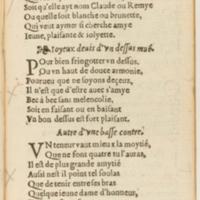 Soit qu'elle ayt nom Claude ou Remye
Ou quelle soit blanche ou brunette,
Qui veut aymer si cherche amye
Ieune, plaisante & iolyette.
Ioyeux deuis d'vn dessus mub.
POur bien fringotter vn dessus,
Ou vn haut de douce armonie,
Pourueu que ne soyons deçeux,
Il n'est que d'estre auec s'amye
Bec à bec sans melencolie,
Soit en faisant ou en baisant
Vn bon dessus est fort plaisant.
Autre d'vne basse contre.
VN teneur vaut mieux a la moytié,
Que ne font quatre tu l'auras,
Il est de plus grande amytié
Aussi nest il point tel soulas
Que de tenir entre ses bras
Quelque ieune dame d'honneur,